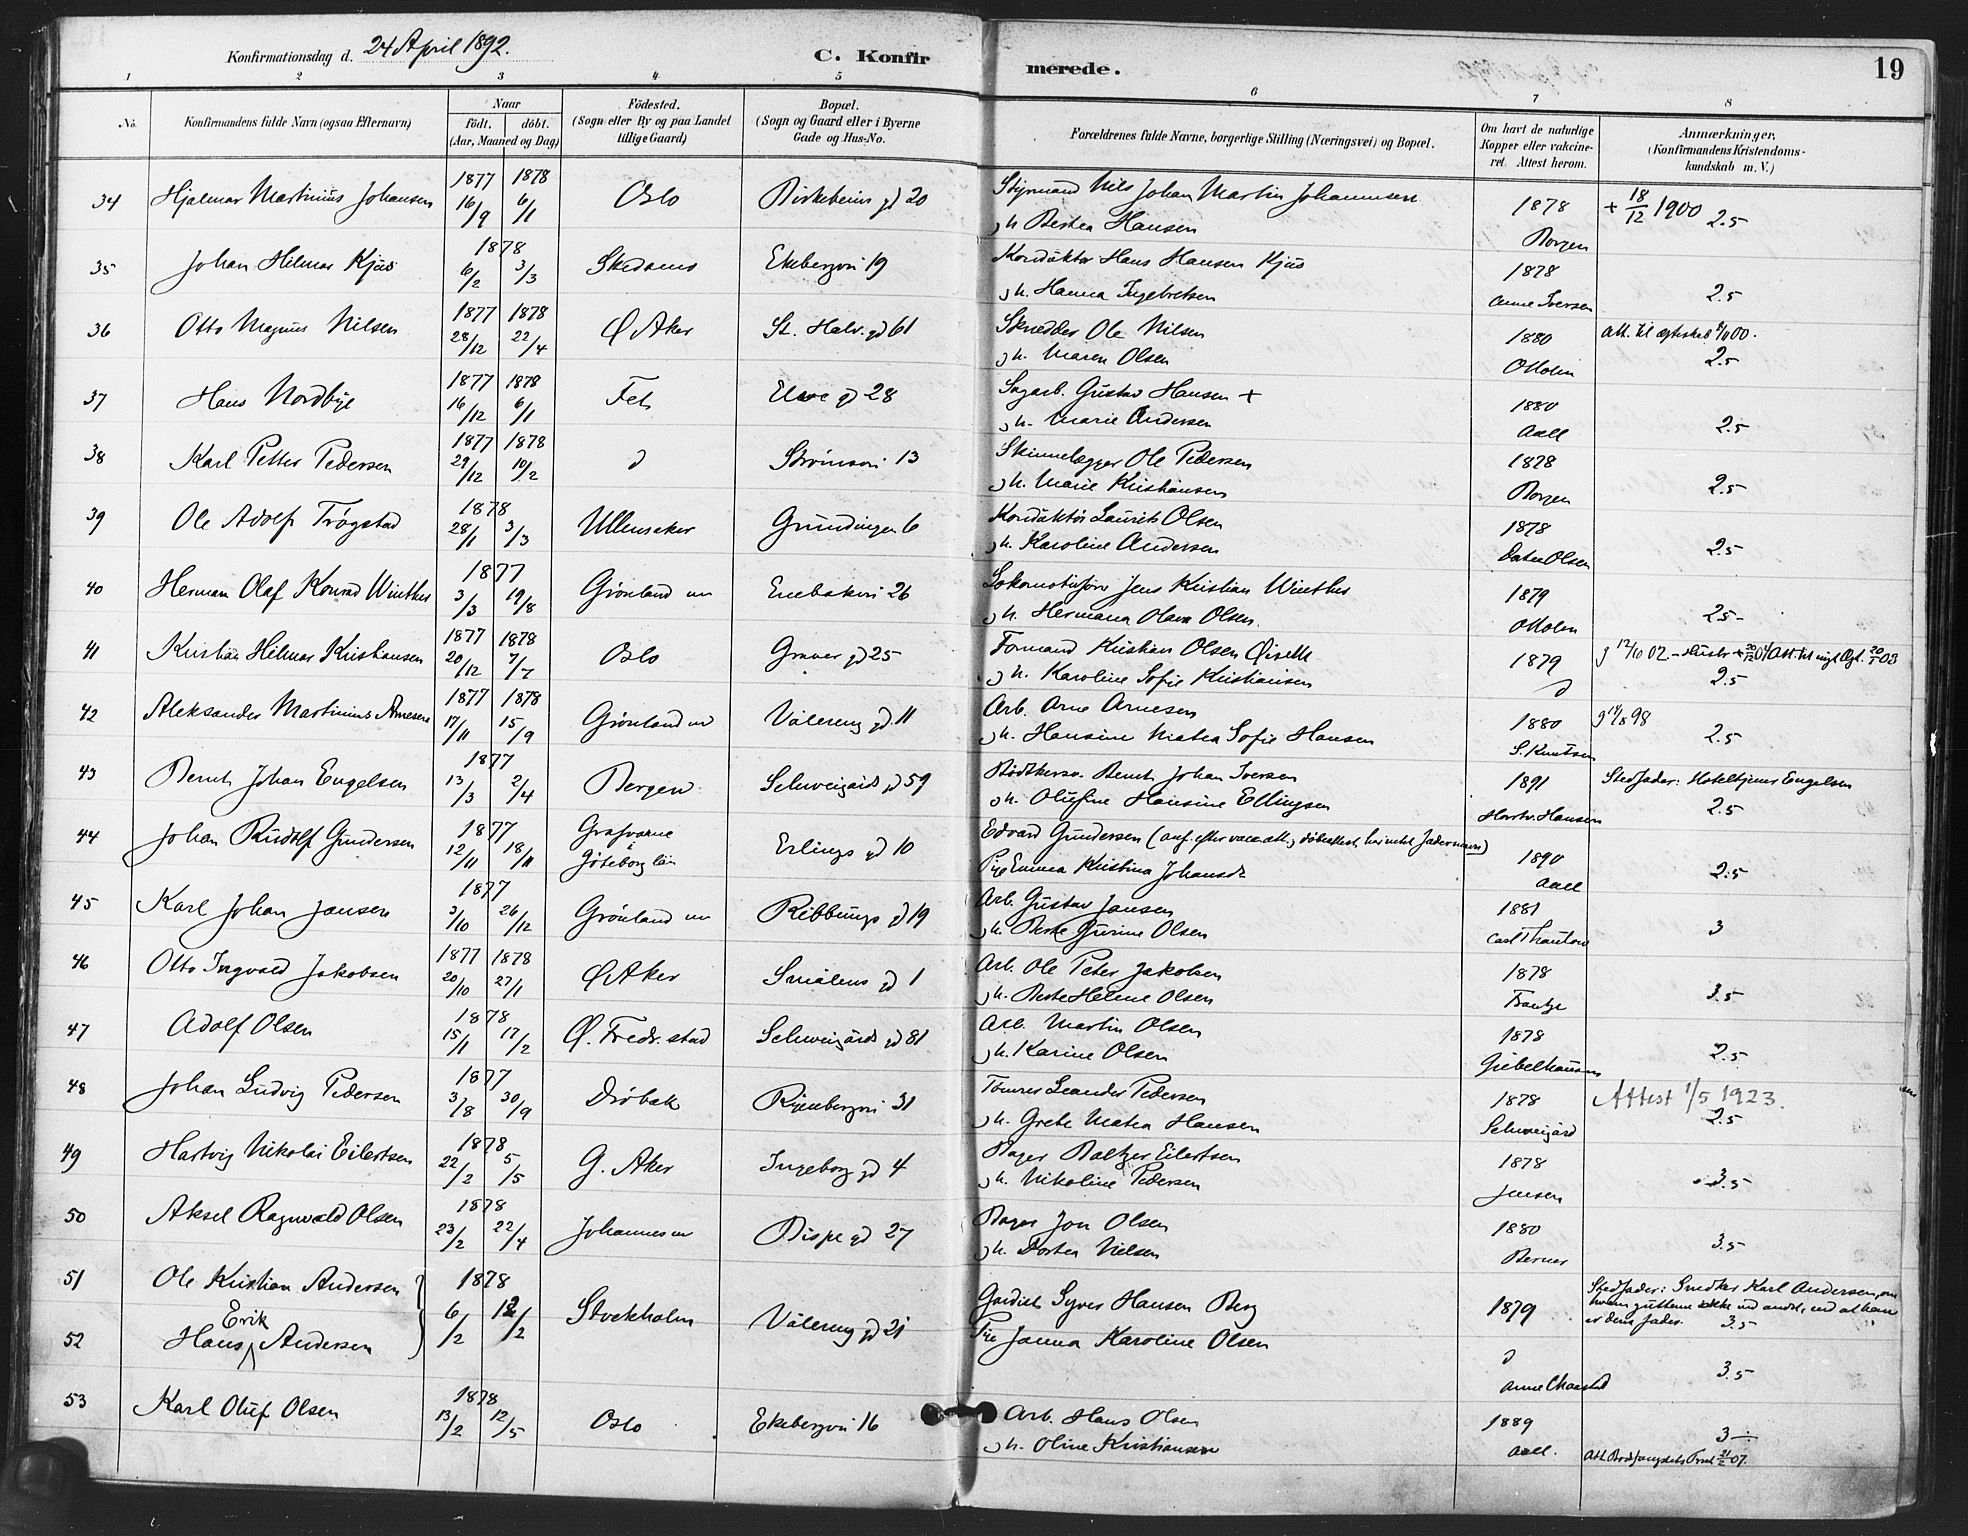 Konfirmationsdag d. 24 April 1892.
C. Konfirmerede.
19
1 2 3 4 5 6 7 8
No.
Konfirmandens fulde Navn (ogsaa Efternavn)
Naar
födt. döbt.
(Aar, Maaned og Dag)
Födested.
(Sogn eller By og paa Landet
tillige Gaard)
Bopæl.
(Sogn og Gaard eller i Byerne
Gade og Hus-No.
Forældrenes fulde Navne, borgerlige Stilling (Næringsvei) og Bopæl.
Om havt de naturlige
Kopper eller vakcine-
ret. Attest herom.
Anmærkninger,
(Konfirmandens Kristendoms-
kundskab m. V.)
34 Hjalmar Martinius Johansen 1877 16/9 1878 6/1 Oslo Birkebeins gd 20 Styrmand Nils Johan Martin Johannesen 1878 + 18/12 1900
h. Berthea Hansen Borgen 2.5
35 Johan Hilmar Kjus 1878 6/2 3/3 Skedsmo Ekebergvn 19 Konduktør Hans Hansen Kjus 1878
h. Hanna Ingebretsen Anne Iversen 2.5
36 Otto Magnus Nilsen 1877 28/12 1878 22/4 Ø Aker St. Halv. gd 61 Skrædder Ole Nilsen 1880
h. Maren Olsen 2.5
37 Hans Nordbye 1877 16/12 1878 6/1 Fet 28 Sagarb. Gustav Hansen + 1880
h. Marie Andersen Aall 2.5
38 Karl Petter Pedersen 1877 29/12 1878 10/2 d Strømsvn 13 Ole Pedersen 1878
h. Marie Kristiansen Borgen 2.5
39 Ole Adolf Trøgstad 1878 28/1 3/3 Ullensaker Grundingen 6 Konduktør Laurits Olsen 1878
h. Karoline Andersen Olsen 2.5
40 Herman Olaf Konrad Winther 1877 3/3 19/8 Grønland Enebakvn 26 Lokomotivfører Jens Kristian Winther 1879
h. Hermana Olava Olsen. 2.5
41 Kristian Hilmar Kristiansen 1877 20/12 1878 7/7 Oslo Graver gd 25 Formand Kristian Olsen 1879 g 12/10 02.
h. Karoline Sofie Kristiansen d 2.5
42 Aleksander Martinius Arnesen 1877 17/11 1878 15/9 Grønland Våleren gd 11 Arb. Arne Arnesen 1880 98
h. Hansine Mathea Sofie Hansen S. Knutsen 2.5
43 Bernt Johan Engelsen 1877 13/3 2/4 Bergen Schweigårds gd 59 Bødkersv. Bernt Johan Iversen 1891 Stedfader: Hoteltjener Engelsen
h. Olufine Hansine Ellingsen Hansen 2.5
44 Johan Rudolf Gundersen 1877 12/11 18/11 Göteborg län Erlings gd 10 Edvard Gundersen 1890
Pige Emma Kristina Aall 2.5
45 Karl Johan Jansen 1877 3/10 26/12 Grønland Ribbungs gd 19 Arb. Gustav Jansen 1881
h. Berte Gurine Olsen 3
46 Otto Ingvald Jakobsen 1877 20/10 1878 27/1 Ø Aker Smålens gd 1 Arb. Ole Peter Jakobsen 1878
h. Berte Helene Olsen 3.5
47 Adolf Olsen 1878 15/1 17/2 Ø. Fredr. stad Schweigårds gd 81 Arb. Martin Olsen 1878
h. Karine Olsen Giebelhausen 2.5
48 Johan Ludvig Pedersen 1877 3/8 30/9 Drøbak Ryenbergvn 31 Tømrer Leander Pedersen 1878 Attest 1/5 1923.
h. Grete Mathea Hansen Schweigård 2.5
49 Hartvig Nikolai Eilertsen 1878 22/2 5/5 G. Aker Ingeborg gd 4 Bager Baltzer Eilertsen 1878
h. Nikoline Pedersen Jensen 3.5
50 Aksel Ragnvald Olsen 1878 23/2 22/4 Johannes Bispe gd 27 Bager Jon Olsen 1880
h. Dortea Nielsen Berner 3.5
51 Ole Kristian Andersen 1878 6/2 Stockholm Våleren gd 21 Gardist Syver Hansen Berg 1879 Stedfader: Smed Karl Andersen, om
hvem guttene ikke ved andet, end at han
er dens fader. 3.5
52 Hans Erik Andersen Pige Janna Karoline Olsen d 3.5
53 Karl Oluf Olsen 1878 13/2 12/5 Oslo Ekebergvn 16 Arb. Hans Olsen 1889
h. Oline Kristiansen Aall. 3